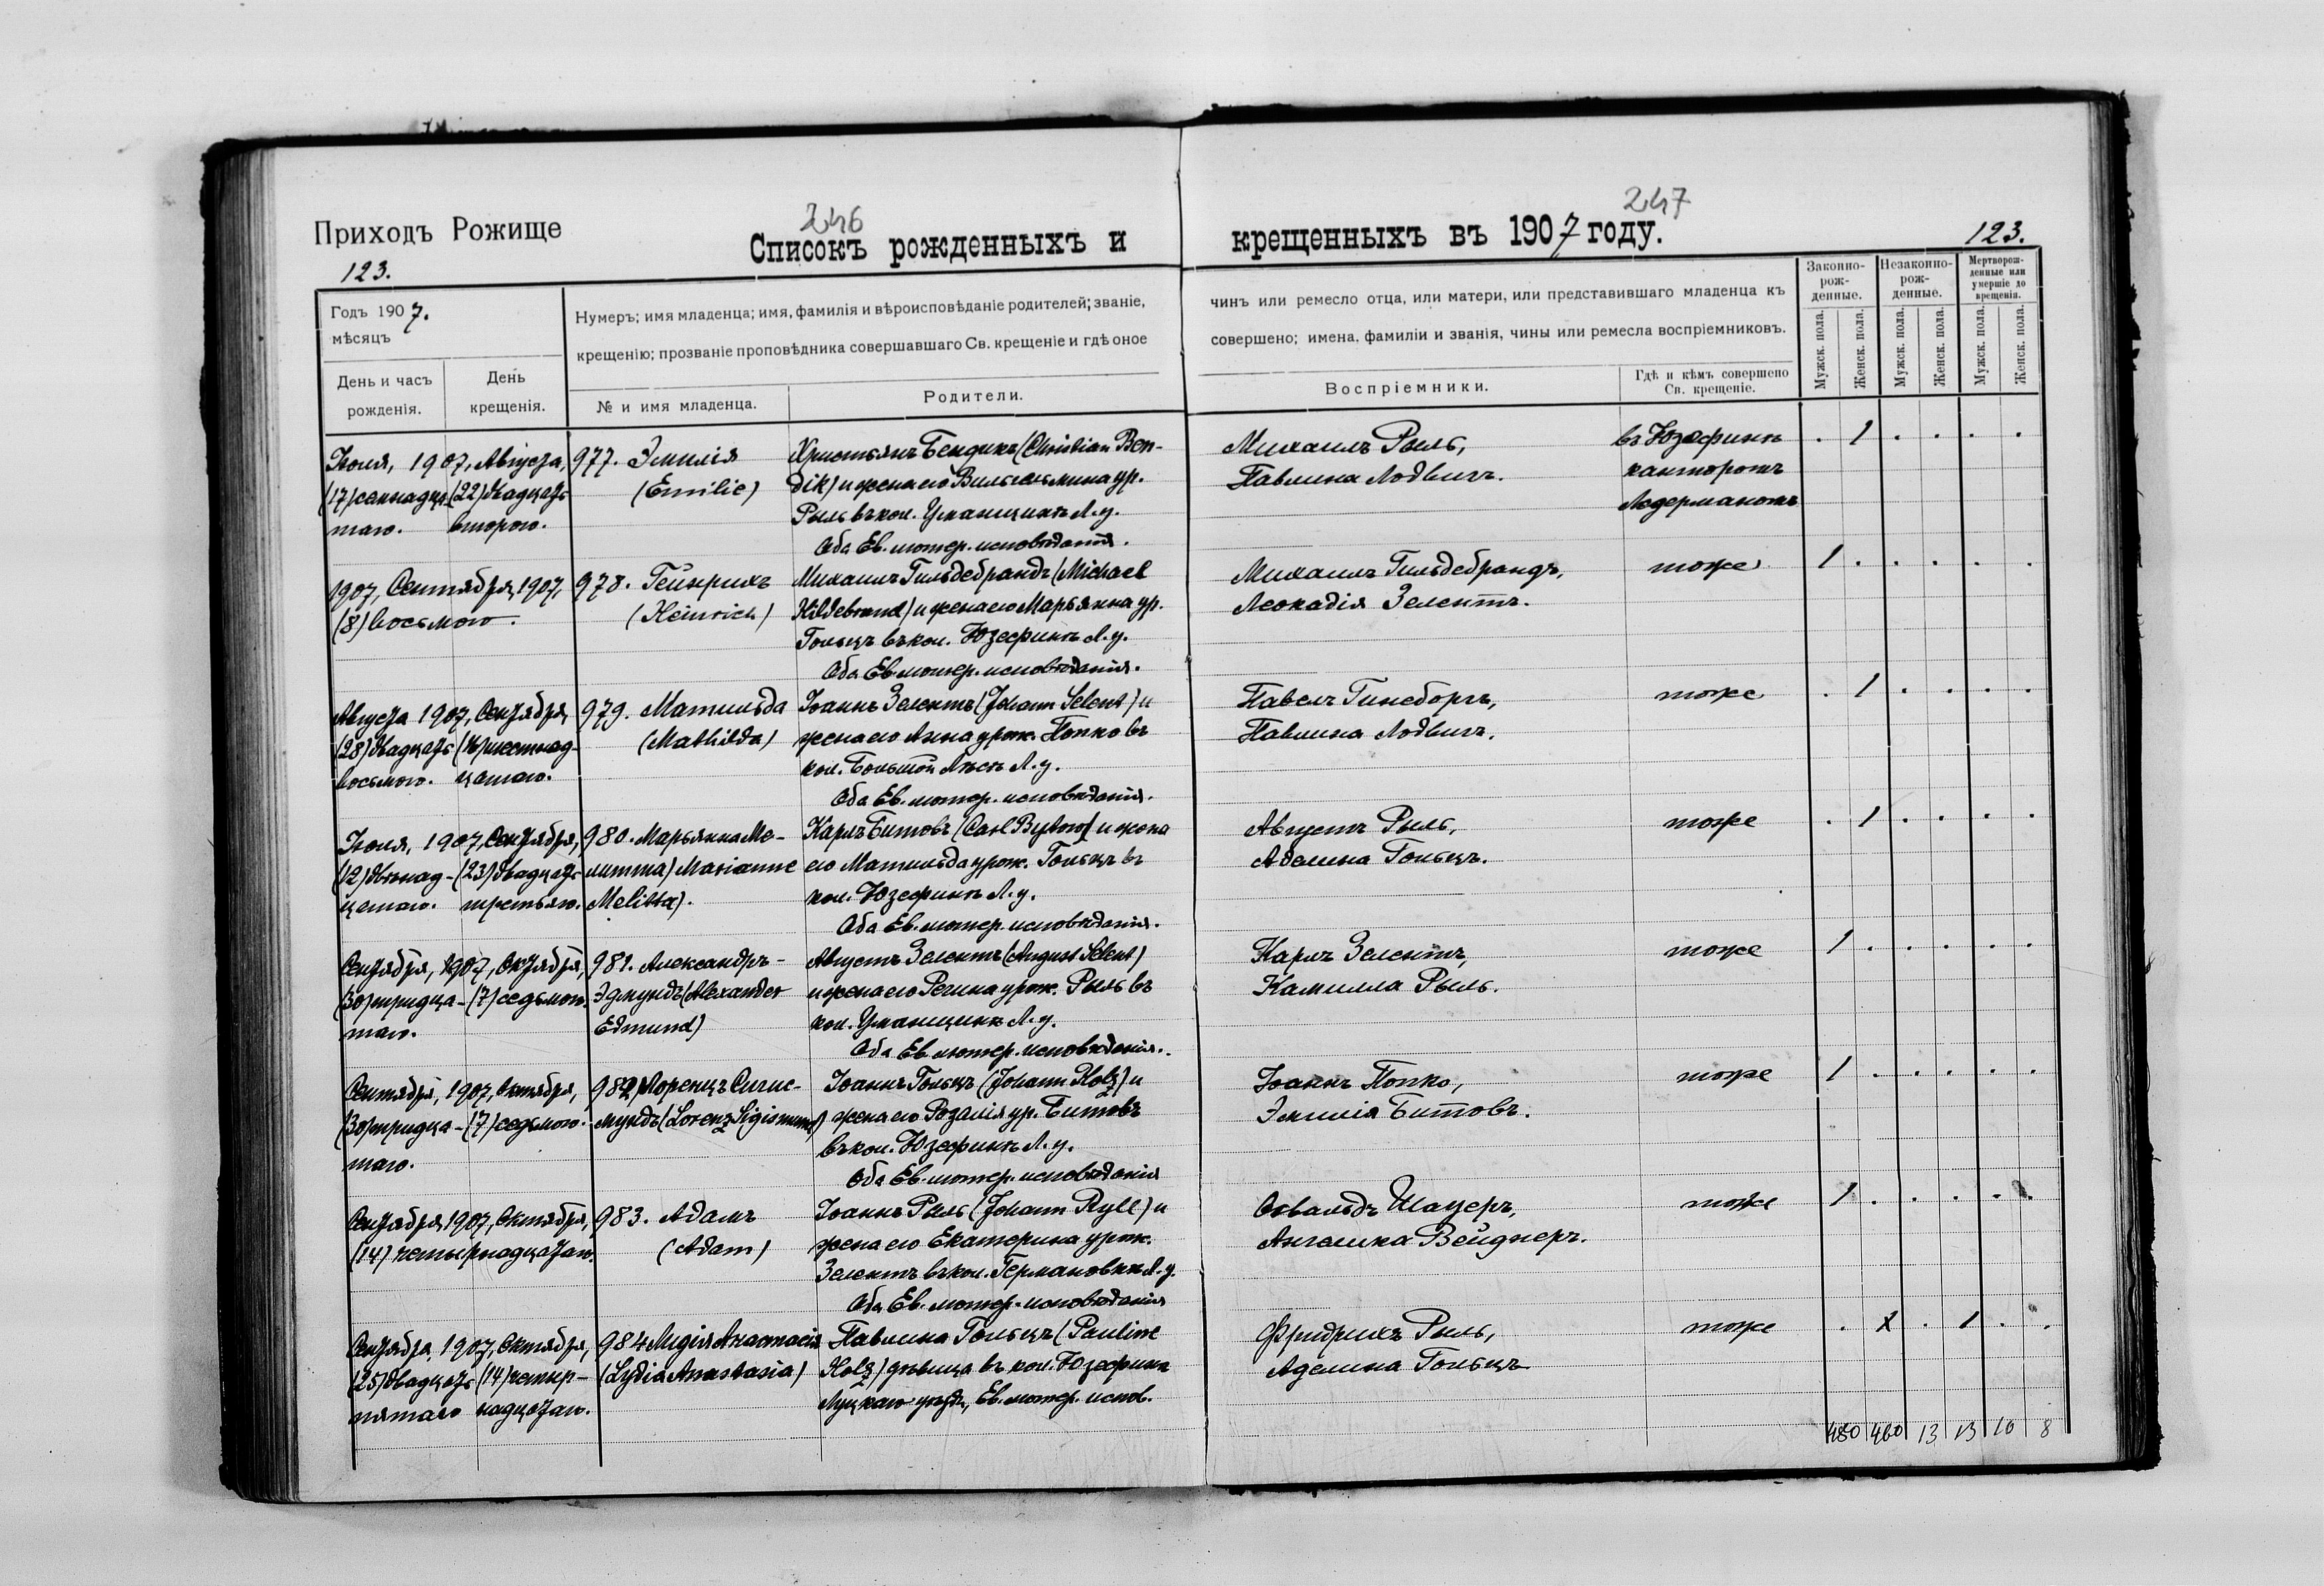 246
247
Приходъ Рожище
Списокъ рожденныхъ и
крещенныхъ въ 1907 году.
123.
123.
Годъ 1907.
мѣсяцъ
День и часъ рожденія.
День крещенія.
Нумеръ; имя младенца; имя, фамилія и вѣроисповѣданіе родителей; званіе,
крещенію; прозваніе проповѣдника совершавшаго Св. крещеніе и гдѣ оное
№ и имя младенца.
Родители.
чинъ или ремесло отца, или матери, или представившаго младенца къ
совершено; имена, фамиліи и званія, чины или ремесла воспріемниковъ.
Воспріемники.
Гдѣ и кѣмъ совершено
Св. крещеніе.
Законно-
рож-
денные.
Незаконно-
рож-
денные.
Мертворож-
денные или
умершіе до
крещенія.
Мужск. пола.
Женск. пола.
Мужск. пола.
Женск. пола.
Мужск. пола.
Женск. пола.
Іюля, 1907, Августа,
(17) семнадца-
таго.
(22) двадцать
второго.
977. Эмилія
(Emilie)
Христьянъ Бендикъ (Christian Ben-
dik) и жена его Вильгельмина ур.
Рыль въ кол. Уманщинѣ Л. у.
Оба Ев. лютер. исповѣданія.
Михаилъ Рыль,
Павлина Лодвигъ.
въ Юзефинѣ
канторомъ
Ледерманомъ
. 1 . . . .
1907, Сентября, 1907,
(8) восьмого.
978. Гейнрихъ
(Heinrich)
Михаилъ Гильдебрандъ (Michael
Hildebrand) и жена его Марьянна ур.
Гольцъ въ кол. Юзефинѣ Л. у.
Оба Ев. лютер. исповѣданія.
Михаилъ Гильдебрандъ,
Леокадія Зелентъ.
тоже
1 . . . . .
Августа 1907, Сентября,
(28) двадцать
восьмого.
(16) шестнад-
цатаго.
979. Матильда
(Mathilda)
Іоаннъ Зелентъ (Johann Selent) и
жена его Анна урож. Попко въ
кол. Большой Лѣсъ Л. у.
Оба Ев. лютер. исповѣданія.
Павелъ Гинсборгъ,
Павлина Лодвигъ.
тоже
. 1 . . . .
Іюля, 1907, Сентября,
(12) двѣнад-
цатаго.
(23) двадцать
третьяго.
980. Марьянна Ме-
литта) Marianne
Melitta).
Карлъ Битовъ (Carl Bytow) и жена
его Матильда урож. Гольцъ въ
кол. Юзефинѣ Л. у.
Оба Ев. лютер. исповѣданія.
Августъ Рыль,
Аделина Гольцъ.
тоже
. 1 . . . .
Сентября, 1907, Октября,
(30) тридца-
таго.
(7) седьмого.
981. Александръ-
Эдмундъ (Alexander
Edmund)
Августъ Зелентъ (August Selent)
и жена его Регина урож. Рыль въ
кол. Уманщинѣ Л. у.
Оба Ев. лютер. исповѣданія.
Карлъ Зелентъ,
Камилла Рыль.
тоже
1 . . . . .
Сентября, 1907, Октября,
(30) тридца-
таго.
(7) седьмого.
982. Лоренцъ Сигис-
мундъ (Lorenz Sigismund)
Іоаннъ Гольцъ (Johann Holz) и
жена его Розалія ур. Битовъ
въ кол. Юзефинѣ Л. у.
Оба Ев. лютер. исповѣданія
Іоаннъ Попко,
Эмилія Битовъ.
тоже
1 . . . . .
Сентября 1907, Октября,
(14) четырнадцатаго.
983. Адамъ
(Adam)
Іоаннъ Рыль (Johann Ryll) и
жена его Екатерина урож.
Зелентъ въ кол. Германовкѣ Л. у.
Оба Ев. лютер. исповѣданія
Освальдъ Шауеръ,
Ангелика Вейднеръ.
тоже
1 . . . . .
Сентября, 1907, Октября,
(25) двадцать
пятаго
(14) четыр-
надцатаго.
984 Лидія Анастасія
(Lydia Anastasia)
Павлина Гольцъ (Pauline
Holz) дѣвица въ кол. Юзефинѣ
Луцкаго уѣзда, Ев. лютер. испов.
Фридрихъ Рыль,
Аделина Гольцъ
тоже
. X . 1 . .
480 460 13 13 10 8